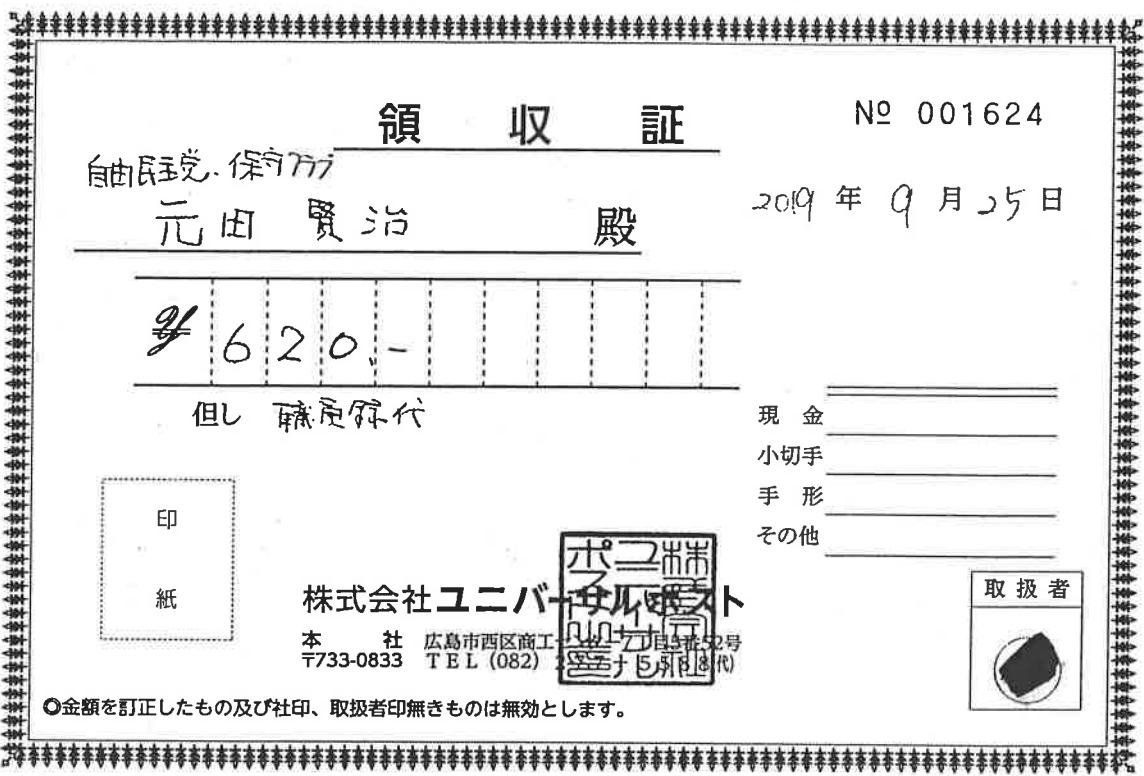 領収証
№ 001624
自由民主党・保守クラブ
元田 賢治 殿
2019年9月25日
¥620.-
但し 職員録代
現金
小切手
手形
その他
印紙
株式会社ユニバーサルポスト
本社 広島市西区商工センター七丁目5番52号
〒733-0833 TEL (082) 5588(代)
取扱者
◎金額を訂正したもの及び社印、取扱者印無きものは無効とします。